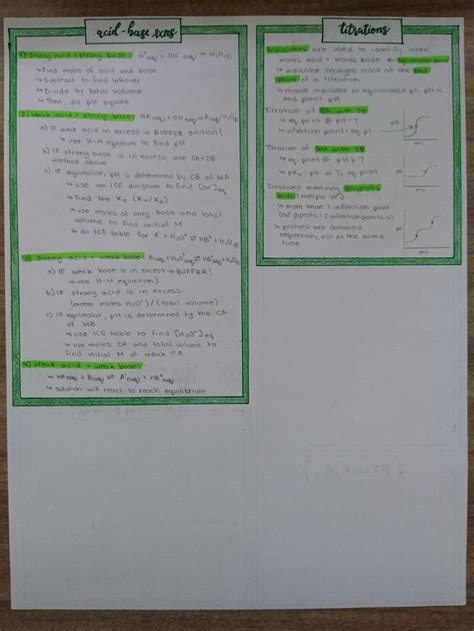 acid-base rxns
1) Strong acid + strong base: H⁺(aq) + OH⁻(aq) → H₂O(l)
↳ Find moles of acid and base
↳ Subtract to find leftover
↳ Divide by total volume
↳ Then, do pH square
2) Weak acid + strong base: HA(aq) + OH⁻(aq) → A⁻(aq) + H₂O(l)
a) IF weak acid in excess → BUFFER solution!
↳ use H-H equation to find pH
b) IF strong base is in excess, use SA + SB
method above
c) IF equimolar, pH is determined by CB of WA
↳ use an ICE diagram to find [OH⁻]eq
↳ find the Kb (Kw/Ka)
↳ use moles of conj. base and total
volume to find initial M
↳ do ICE table for A⁻ + H₂O(l) ⇌
3) Strong acid + weak base:
a) IF weak base is in excess → BUFFER!
↳ use H-H equation!
b) IF strong acid is in excess:
(excess moles H₃O⁺) / (total volume)
c) IF equimolar, pH is determined by the CA
of WB
↳ use ICE table to find [H₃O⁺]eq
↳ use moles CA and total volume to
find initial M of weak
4) Weak acid + weak base:
↳ HA(aq) + B(aq) ⇌ A⁻(aq) + HB⁺(aq)
↳ solution will react to reach equilibrium
titrations
Indicators are used to identify when
moles acid = moles base ←
↳ indicator changes color at the end
point of a titration
↳ choose indicator so equivalence pt. pH ≈
end point pH
Titration of SA with SB
↳ eq. point @ pH = 7
↳ inflection point = eq. pt.
Titration of WA with SB
↳ eq. point @ pH > 7
↳ pKa = pH at ½ eq. point
mL
Titrations involving polyprotic
acids (multiple H⁺)
↳ more than 1 inflection point
(ex: diprotic = 2 inflection points →)
↳ protons are donated
sequentially, not at the
same time
mL